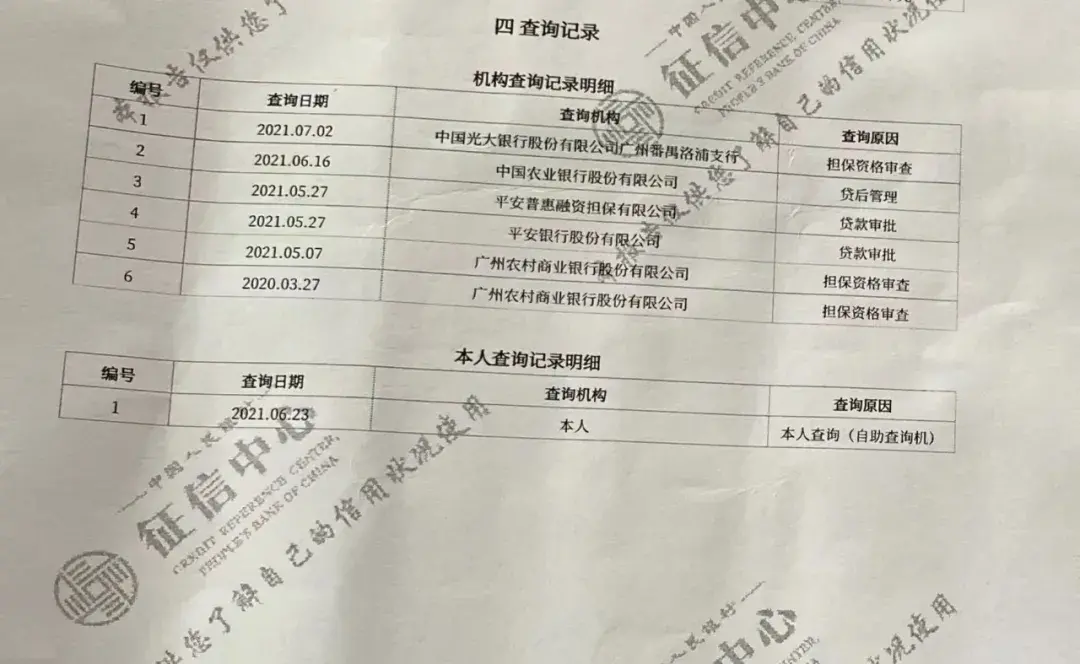 四 查询记录
机构查询记录明细
编号 查询日期 查询机构 查询原因
1 2021.07.02 中国光大银行股份有限公司广州番禺洛浦支行 担保资格审查
2 2021.06.16 中国农业银行股份有限公司 贷后管理
3 2021.05.27 平安普惠融资担保有限公司 贷款审批
4 2021.05.27 平安银行股份有限公司 贷款审批
5 2021.05.07 广州农村商业银行股份有限公司 担保资格审查
6 2020.03.27 广州农村商业银行股份有限公司 担保资格审查
本人查询记录明细
编号 查询日期 查询机构 查询原因
1 2021.06.23 本人 本人查询（自助查询机）
告仅供您了
中国人
征信中心
CREDIT REFERENCE CENTER,
PEOPLE'S BANK OF CHINA
报告仅供您了解自己的信用状况使
中国人民银
征信中心
CREDIT REFERENCE CENTER,
PEOPLE'S BANK OF CHINA
供您了解自己的信用状况使用
人民银行
中心
CENTER,
CHINA
状况使用